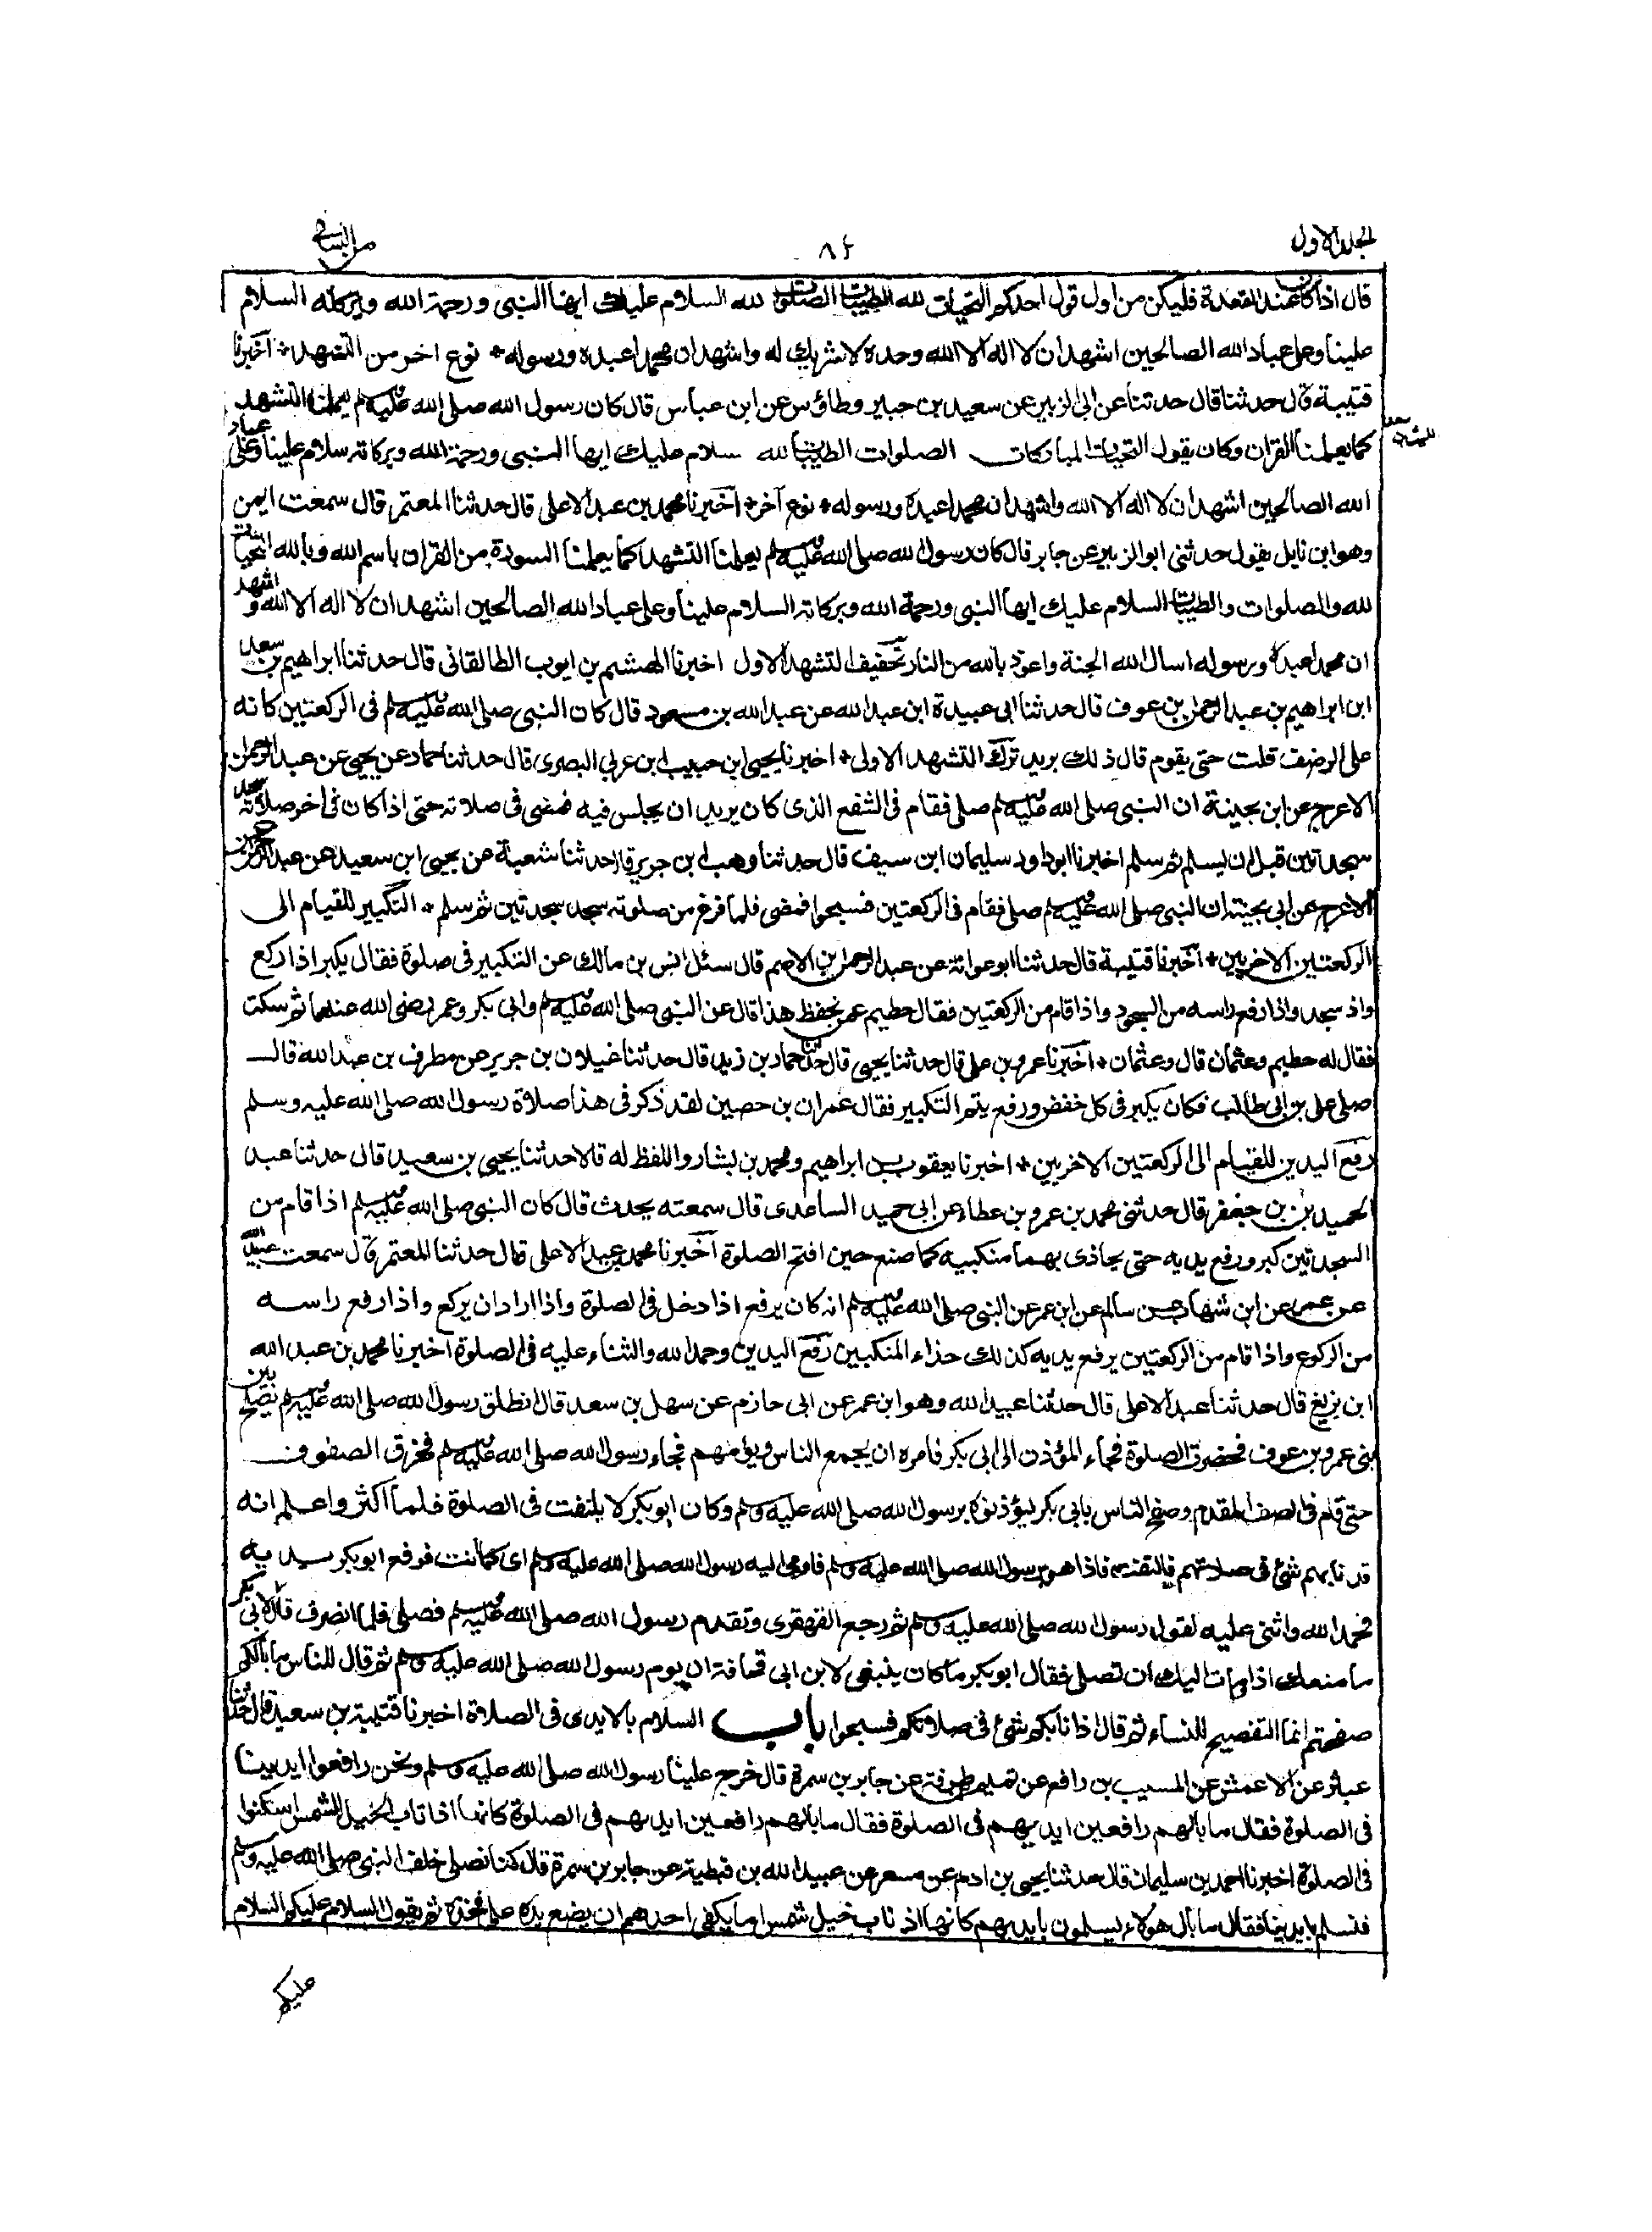 المجلد الاول
٨٤
من النسائي
قال اذا كان عند القعدة فليكن من اول قول احدكم التحيات لله الطيبات الصلوات لله السلام عليك ايها النبى ورحمة الله وبركاته السلام
علينا وعلى عباد الله الصالحين اشهد ان لا اله الا الله وحده لا شريك له واشهد ان محمدا عبده ورسوله * نوع اخر من التشهد * اخبرنا
قتيبة قال حدثنا قال حدثنا عن ابى الزبير عن سعيد بن جبير وطاؤس عن ابن عباس قال كان رسول الله صلى الله عليه وسلم يعلمنا التشهد
كما يعلمنا القران وكان يقول التحيات المباركات الصلوات الطيبات لله سلام عليك ايها النبى ورحمة الله وبركاته سلام علينا وعلى عباد
الله الصالحين اشهد ان لا اله الا الله واشهد ان محمدا عبده ورسوله * نوع آخر * اخبرنا محمد بن عبد الاعلى قال حدثنا المعتمر قال سمعت ايمن
وهو ابن نابل يقول حدثنى ابو الزبير عن جابر قال كان رسول الله صلى الله عليه وسلم يعلمنا التشهد كما يعلمنا السورة من القران باسم الله وبالله التحيات
لله والصلوات والطيبات السلام عليك ايها النبى ورحمة الله وبركاته السلام علينا وعلى عباد الله الصالحين اشهد ان لا اله الا الله واشهد
ان محمدا عبده ورسوله اسال الله الجنة واعوذ بالله من النار تخفيف التشهد الاول اخبرنا الهشيم بن ايوب الطالقانى قال حدثنا ابراهيم بن سعد
ابن ابراهيم بن عبد الرحمن بن عوف قال حدثنا ابى عبيدة ابن عبد الله عن عبد الله بن مسعود قال كان النبى صلى الله عليه وسلم فى الركعتين كانه
على الرضف قلت حتى يقوم قال ذلك يريد ترك التشهد الاولى * اخبرنا يحيى ابن حبيب ابن عربي البصرى قال حدثنا حماد عن يحيى عن عبد الرحمان
الاعرج عن ابن بحينة ان النبى صلى الله عليه وسلم صلى فقام فى الشفع الذى كان يريد ان يجلس فيه فمضى فى صلاته حتى اذا كان فى اخر صلاته سجد
سجدتين قبل ان يسلم ثم سلم اخبرنا ابو داود سليمان ابن سيف قال حدثنا وهب ابن جرير قال حدثنا شعبة عن يحيى ابن سعيد عن عبد الرحمن
الاعرج عن ابى بحينة ان النبى صلى الله عليه وسلم صلى فقام فى الركعتين فسبحوا فمضى فلما فرغ من صلوته سجد سجدتين ثم سلم * التكبير للقيام الى
الركعتين الاخريين * اخبرنا قتيبة قال حدثنا ابو عوانة عن عبد الرحمن بن الاصم قال سئل انس بن مالك عن التكبير فى صلوة فقال يكبر اذا ركع
واذ سجد واذا رفع راسه من السجود واذا قام من الركعتين فقال حطيم عمن تحفظ هذا قال عن النبى صلى الله عليه وسلم وابى بكر وعمر رضى الله عنهما ثم سكت
فقال له حطيم وعثمان قال وعثمان * اخبرنا عمرو بن على قال حدثنا يحيى قال حدثنا حماد بن زيد قال حدثنا غيلان بن جرير عن مطرف بن عبد الله قال
صلى على بن ابى طالب فكان يكبر فى كل خفض ورفع يتم التكبير فقال عمران بن حصين لقد ذكر فى هذا صلاة رسول الله صلى الله عليه وسلم
رفع اليدين للقيام الى الركعتين الاخريين * اخبرنا يعقوب بن ابراهيم ومحمد بن بشار واللفظ له قالا حدثنا يحيى بن سعيد قال حدثنا عبد
الحميد بن بن جعفر قال حدثنى محمد بن عمرو بن عطاء عن ابى حميد الساعدى قال سمعته يحدث قال كان النبى صلى الله عليه وسلم اذا قام من
السجدتين كبر ورفع يديه حتى يحاذى بهما منكبيه كما صنع حين افتح الصلوة اخبرنا محمد بن عبد الاعلى قال حدثنا المعتمر قال سمعت عبيد الله
عن عمر عن ابن شهاب عن سالم عن ابن عمر عن النبى صلى الله عليه وسلم انه كان يرفع اذا دخل فى الصلوة واذا اراد ان يركع واذا رفع راسه
من الركوع واذا قام من الركعتين يرفع يديه كذلك حذاء المنكبين رفع اليدين وحمد الله والثناء عليه فى الصلوة اخبرنا محمد بن عبد الله
ابن بزيغ قال حدثنا عبد الاعلى قال حدثنا عبيد الله وهو ابن عمر عن ابى حازم عن سهل بن سعد قال انطلق رسول الله صلى الله عليه وسلم يصلح بين
بنى عمرو بن عوف فحضرت الصلوة فجاء المؤذن الى ابى بكر فامره ان يجمع الناس ويؤمهم فجاء رسول الله صلى الله عليه وسلم فخرق الصفوف
حتى قام فى الصف المقدم وصفح الناس بابى بكر ليؤذنوه برسول الله صلى الله عليه وسلم وكان ابو بكر لا يلتفت فى الصلوة فلما اكثر واعلم انه
قد نابهم شئ فى صلاتهم فالتفت فاذا هو برسول الله صلى الله عليه وسلم فاومى اليه رسول الله صلى الله عليه وسلم اى كما انت فرفع ابو بكر يديه
فحمد الله واثنى عليه لقول رسول الله صلى الله عليه وسلم ثم رجع القهقرى وتقدم رسول الله صلى الله عليه وسلم فصلى فلما انصرف قال لابى بكر
ما منعك اذا اومات اليك ان تصلى فقال ابو بكر ما كان ينبغى لابن ابى قحافة ان يوم رسول الله صلى الله عليه وسلم ثم قال للناس ما بالكم
صفحتم انما التصفيح للنساء ثم قال اذا نابكم شئ فى صلاتكم فسبحوا باب السلام بالايدى فى الصلاة اخبرنا قتيبة بن سعيد قال حدثنا
عبثر عن الاعمش عن المسيب بن رافع عن تميم بن طرفة عن جابر بن سمرة قال خرج علينا رسول الله صلى الله عليه وسلم ونحن رافعوا ايدينا
فى الصلوة فقال ما بالهم رافعين ايديهم فى الصلوة فقال ما بالهم رافعين ايديهم فى الصلوة كانها اذناب الخيل الشمس اسكنوا
فى الصلوة اخبرنا احمد بن سليمان قال حدثنا يحيى بن ادم عن مسعر عن عبيد الله بن قبطية عن جابر بن سمرة قال كنا نصلى خلف النبى صلى الله عليه وسلم
فنسلم بايدينا فقال ما بال هولاء يسلمون بايديهم كانها اذناب خيل شمس اما يكفى احدهم ان يضع يده على فخذه ثم يقول السلام عليكم السلام
عليكم